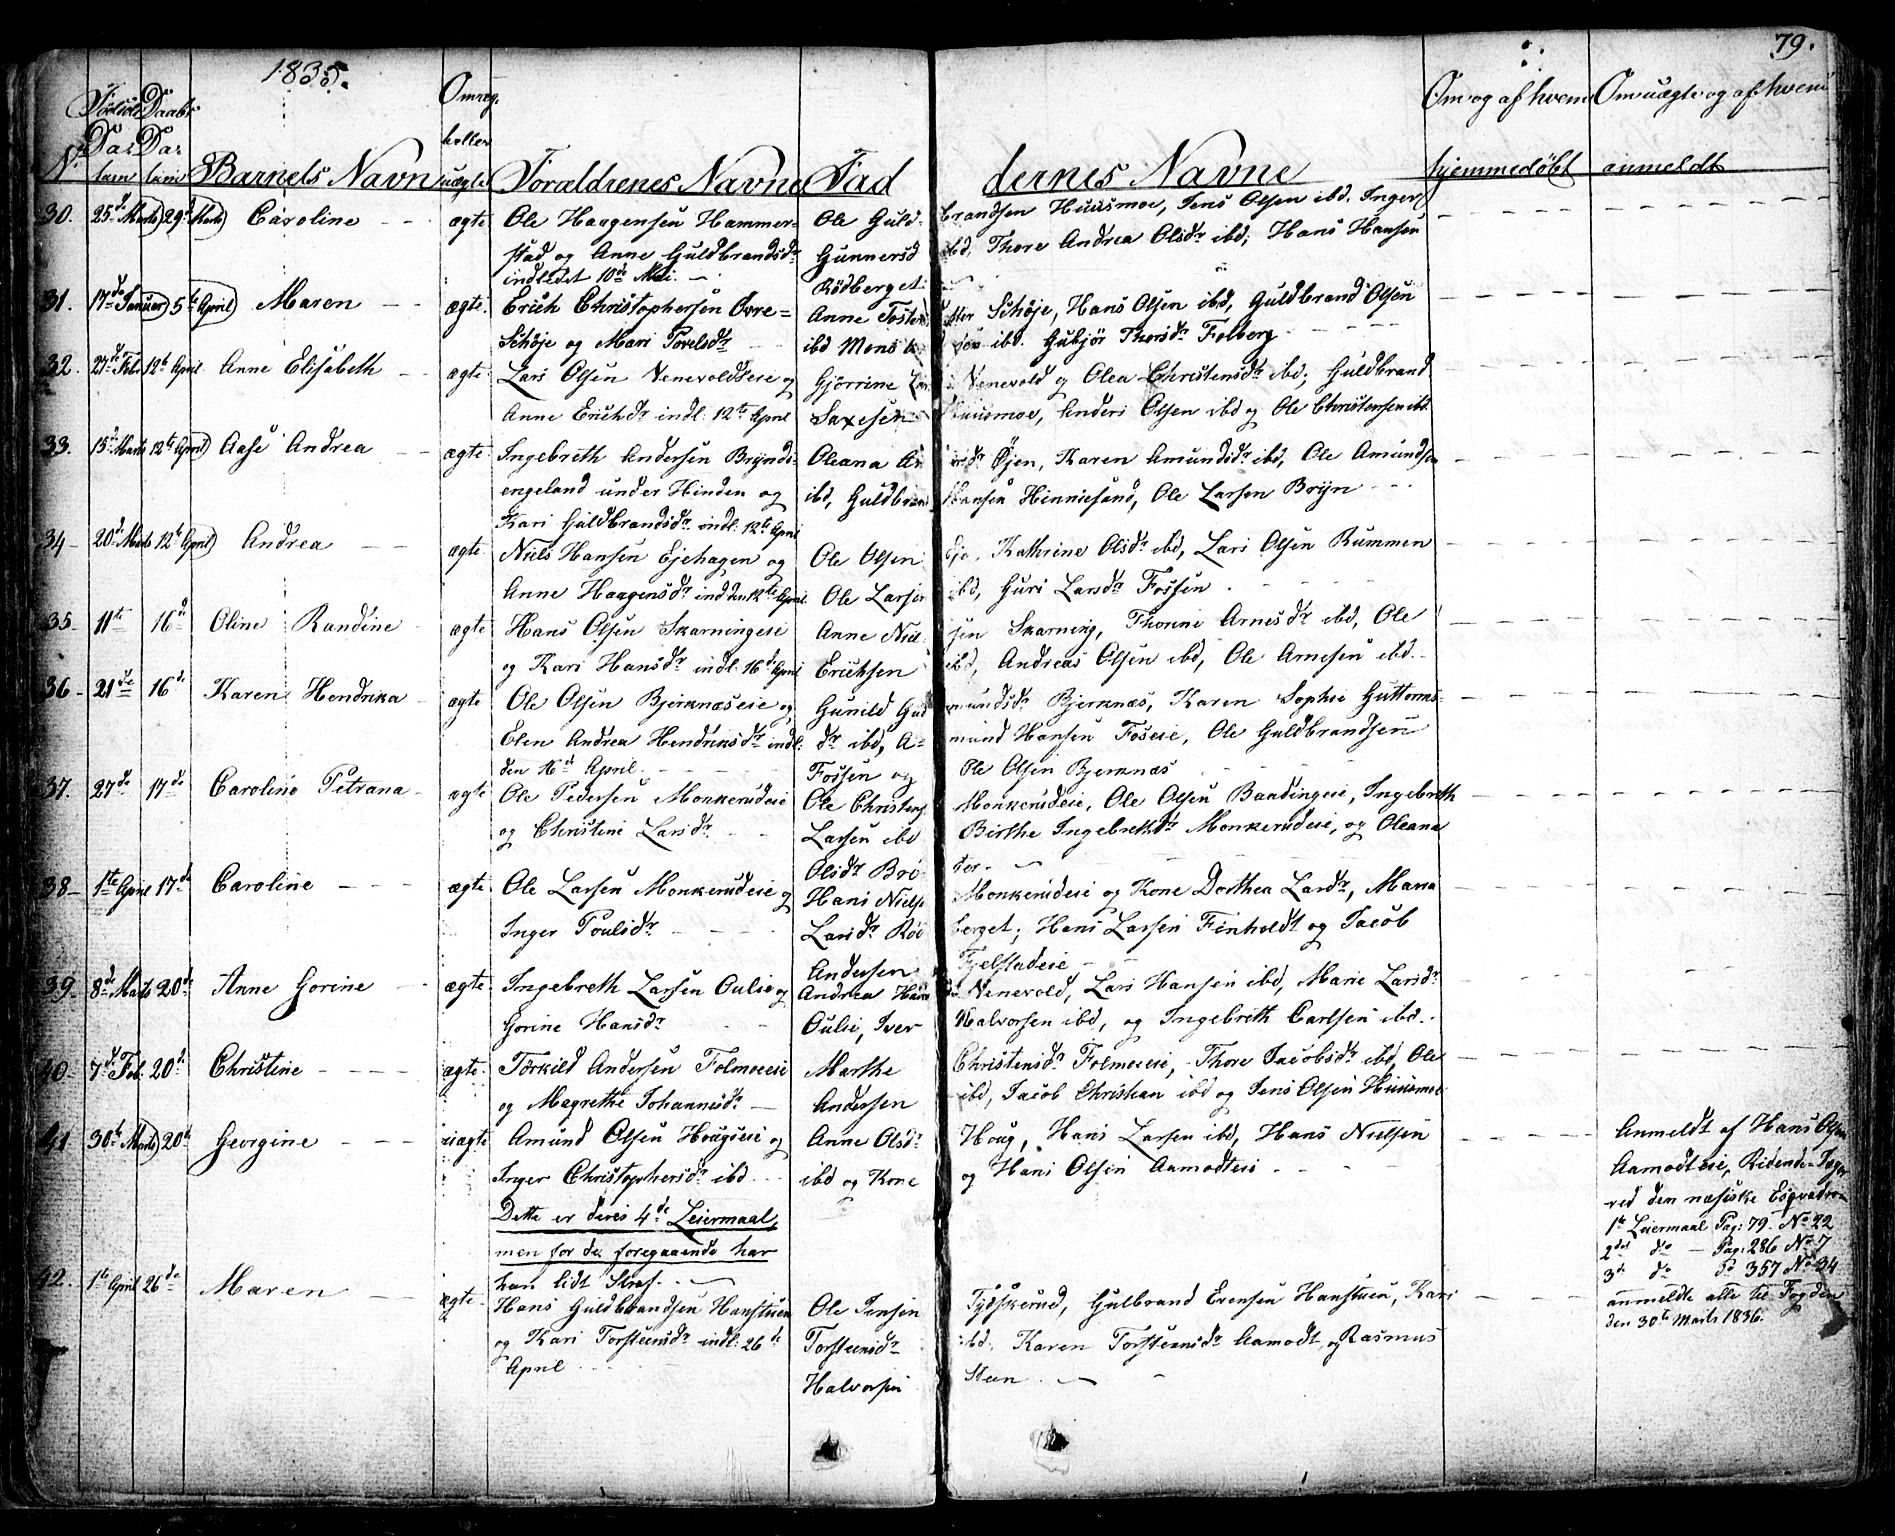 1835.
79.
Fødsels Daabs Omæg
Da= Da= heller
No tum tum Barnets Navn uægte Forældrenes Navne Fad dernes Navne
Om og af hvem hjemmedøbt
Om uægte og af hvem anmeldt
30. 25de Marts 29de Marts Caroline - - ægte Ole Haagensen Hammer= Ole Guld- brandsen Huusmoe, Jens Olsen ibd. Inger
stad og Anne Guldbrandsdr Gunnersd ibd, Thore Andrea Olsdr ibd; Hans Hansen
indledet 10de Mai. Rødberget
31. 17de Januar 5te April Maren - - ægte. Erich Christophersen Øvre= Anne Tosten datter Schøje, Hans Olsen ibd, Guldbrand Olsen
Schøje og Mari Povelsdr ibd Mons ibd. Gubjør Thorsdr Folberg
32. 27de Feb. 12te April Anne Elisabeth - ægte Lars Olsen Nenevoldseie og Gjørrine Lar Nenevold og Olea Christensdr ibd; Guldbrand
Anne Erichsdr indl: 12te April Saxesen Huusmoe, Anders Olsen ibd og Ole Christensen ibd.
33. 15de Marts 12te April Aase Andrea - - ægte Ingebreth Andersen Brynds- Oleana An dersdr Øjen, Karen Amundsdr ibd, Ole Amundsen
engeland under Hinden og ibd, Guldbran Hansen Hinniesand, Ole Larsen Bryn - - -
Kari Guldbrandsdr indl: 12te April
34- 20de Marts 12te April Andrea - - ægte Niels Hansen Ejehagen og Ole Olsen Eje, Kathrine Olsdr ibd, Lars Olsen Rummen
Anne Haagensdr ind den 12te April. Ole Larsen ibd, Guri Larsdr Fossen
35- 11te 16de Oline Randine - ægte Hans Olsen Skarningeie Anne Niel sen Skarning, Thorine Arnesdr ibd, Ole
og Kari Hansdr indl: 16de April Erichsen ibd, Andreas Olsen ibd, Ole Arnesen ibd.
36- 21de 16de Karen Hendrika - ægte Ole Olsen Bjerknæseie og Gunild Gud mundsdr Bjerknæs, Karen Sophie Guttorms-
Elen Andrea Hendriksdr indl: dr ibd, A= mund Hansen Foseie, Ole Guldbrandsen
den 16de April. - - Fossen og Ole Olsen Bjerknæs
37. 27de 17de Caroline Petrana - ægte Ole Pedersen Monkerudeie Ole Christens Monkerudeie, Ole Olsen Baadingeie, Ingebreth
og Christine Larsdr. - - Larsen ibd Birthe Ingebrethdr Monkerudeie, og Oleana
Olsdr Brø- ter.
38- 1te April 17de Caroline - - - ægte Ole Larsen Monkerudeie og Hans Niels Monkerudeie og Kone Dorthea Larsdr, Maria
Inger Poulsdr - - - Larsdr Rød berget; Hans Larsen Finholdt og Jacob
Andersen Fjelstadeie - -
39- 8de Marts 20de Anne Gorine - - ægte. Ingebreth Larsen Oulie og Andrea Hans Nenevold, Lars Hansen ibd, Marie Larsdr
Gorine Hansdr - - Oulie, Iver Halvorsen ibd, og Ingebrith Carlsen ibd. -
40- 7de Feb. 20de Christine - - - - ægte. Torkild Andersen Folmoeeie Marthe Christensdr Folmoeie, Thore Jacobsdr ibd, Ole
og Magrethe Johannesdr - Andersen ibd, Jacob Christian ibd og Jens Olsen Huusmoe
41 30te Marts 20de Georgine - - - uægte Amund Olsen Hougseie og Anne Olsdr Houg, Hans Larsen ibd, Hans Nielsen
Inger Christophersdr ibd - - ibd og Kone og Hans Olsen Aamodteie - -
Dette er deres 4de Leiermaal,
men for de foregaaende har
han lidt Straf. -
Anmeldt af Hans Olsen
Aamodteie, Ridende Jæger
ved den næsiske Esqvadron
1te Leiermaal Pag: 79. No 22
2det do - Pag: 286 No 7
3de do Pd 357 No 34
anmeldte alle til Fogden
den 30te Marts 1836.
42. 1te April 26de Maren - - ægte- Hans Guldbrandsen Hanstuen Ole Jensen Tydskerud, Gulbrand Evensen Hanstuen, Kari
og Kari Torsteensdr indl: 26de Torsteensdr ibd. Karen Torsteensdr Aamodt og Rasmus
April - - - Halvorsen Steen - -